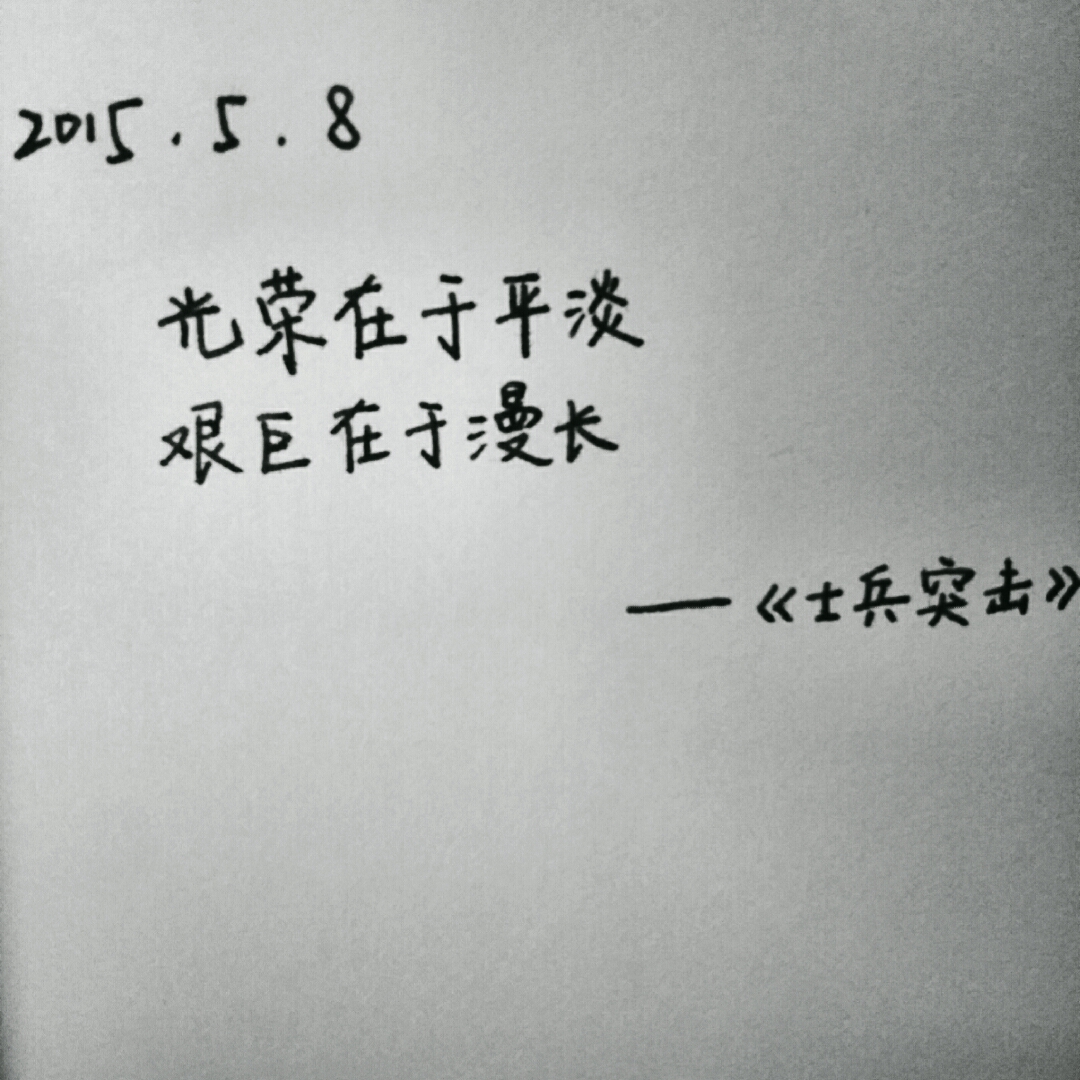 2015.5.8
光荣在于平淡
艰巨在于漫长
——《士兵突击》